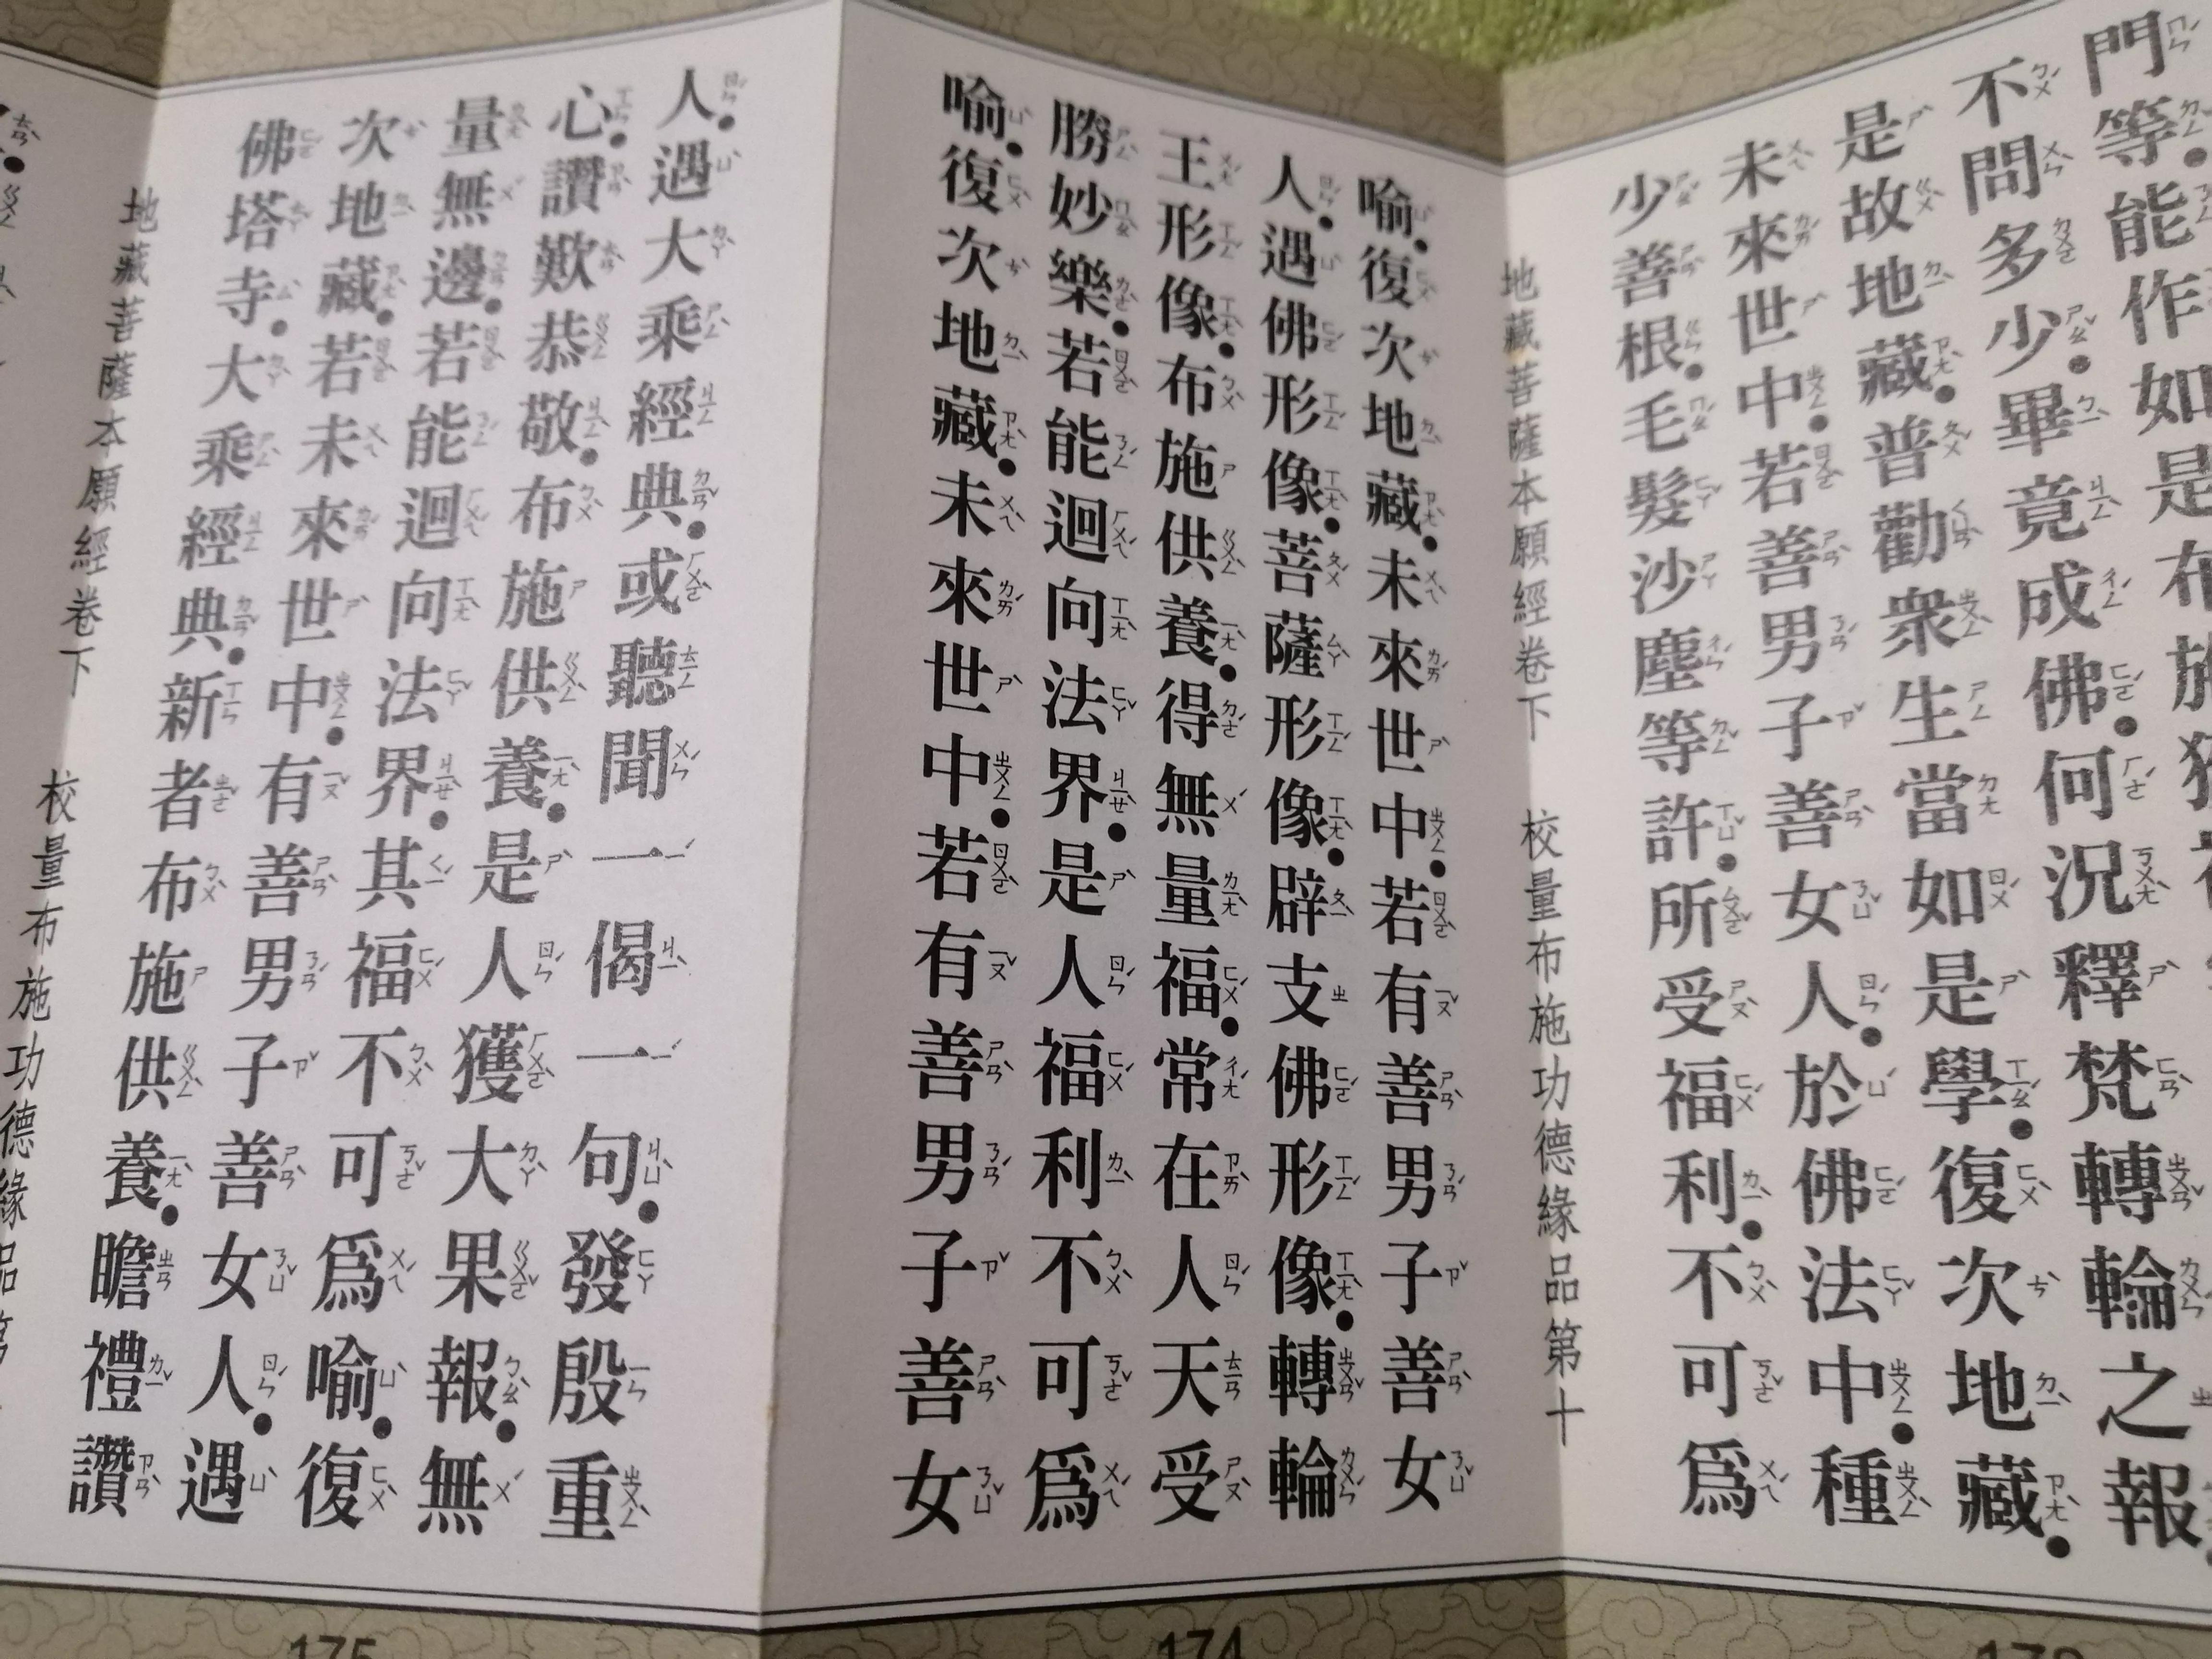 門等。能作如是布施
不問多少。畢竟成佛。何況釋梵轉輪之報。
是故地藏。普勸衆生當如是學。復次地藏。
未來世中。若善男子善女人。於佛法中。種
少善根。毛髮沙塵等許。所受福利。不可爲
地藏菩薩本願經卷下　校量布施功德緣品第十
喻。復次地藏。未來世中。若有善男子善女
人。遇佛形像。菩薩形像。辟支佛形像。轉輪
王形像。布施供養。得無量福。常在人天受
勝妙樂。若能迴向法界。是人福利不可爲
喻。復次地藏。未來世中。若有善男子善女
人。遇大乘經典。或聽聞一偈一句。發殷重
心。讚歎恭敬。布施供養。是人獲大果報無
量無邊。若能迴向法界。其福不可爲喻。復
次地藏。若未來世中。有善男子善女人。遇
佛塔寺。大乘經典。新者布施供養。瞻禮讚
地藏菩薩本願經卷下　校量布施功德緣品
173
174
175